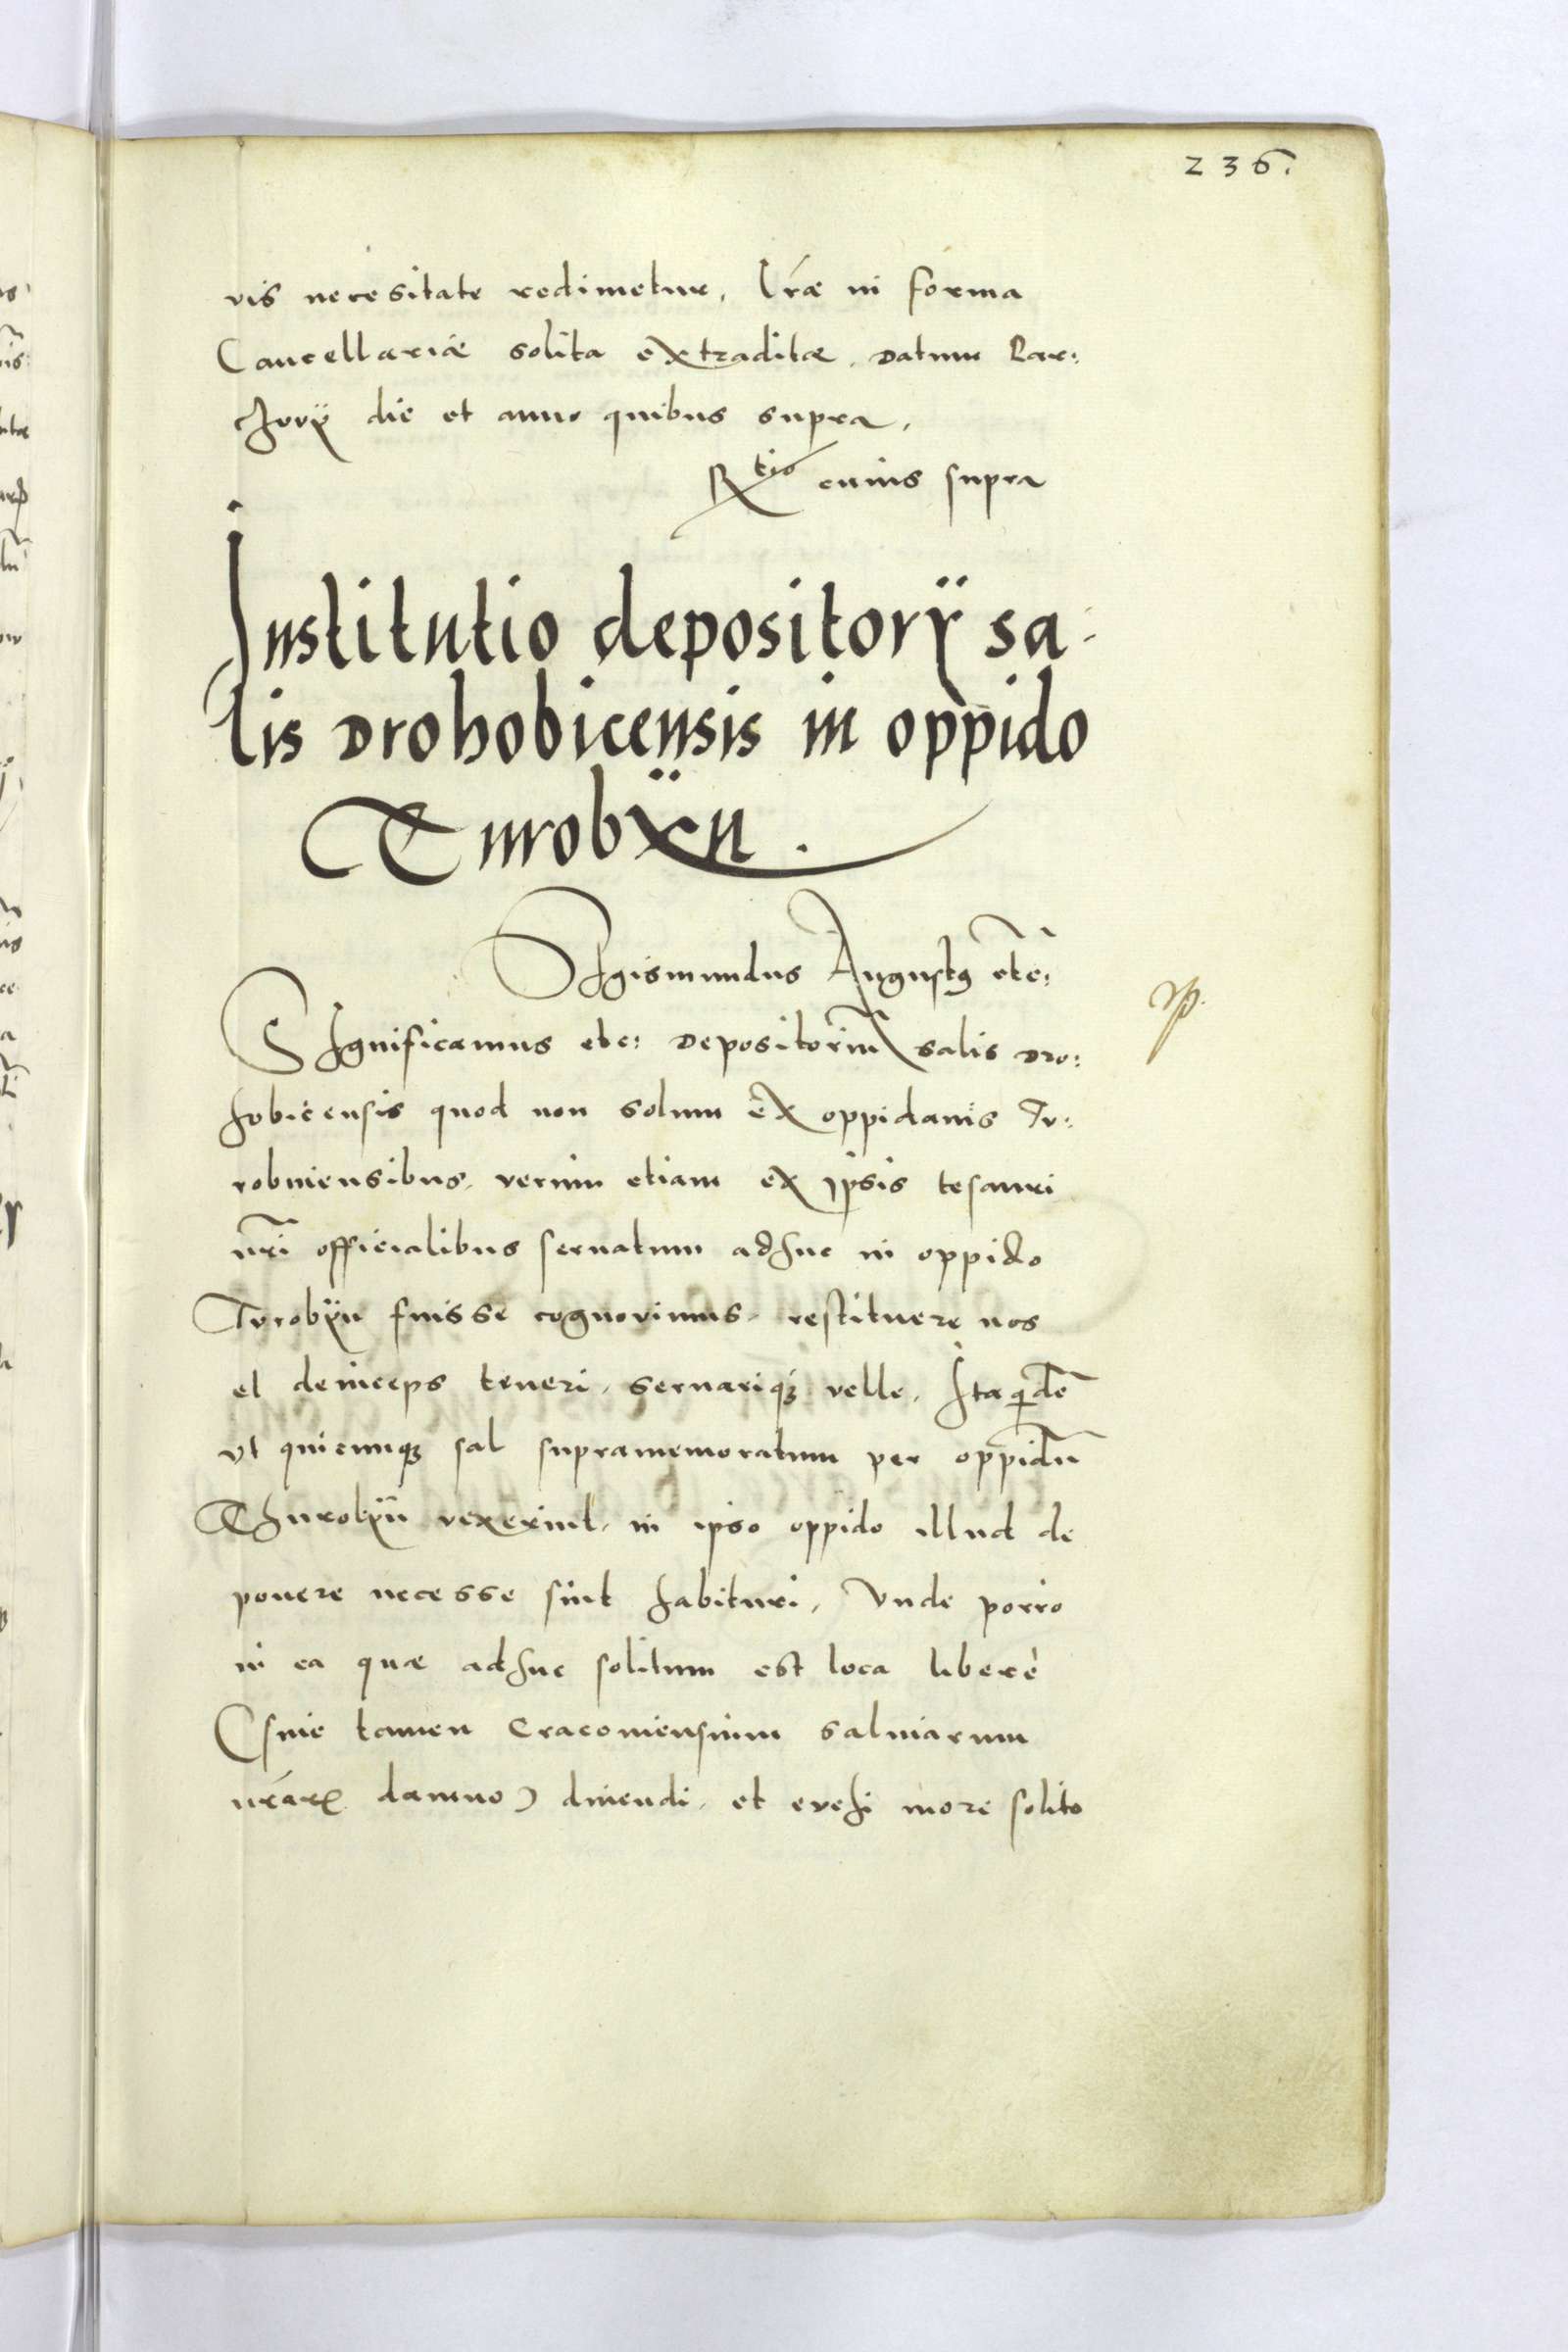 236.
vis necesitate redimetur, Lr̃æ in forma
Cancellariæ solita extraditæ. Datum Par:
choviÿ die et anno quibus supra,
R^tio cuius supra
Institutio depositorÿ sa-
lis Drohobicensis in oppido
Turobÿn.
SIgismundus Augustꝰ etc:
SIgnificamus etc: Depositoriũ salis Dro:
hobicensis quod non solum ex oppidanis Tu:
robiniensibus, verum etiam ex ipsis tesauri
nr̃i officialibus servatum adhuc in oppido
Turobÿn fuisse cognovimus, restituere nos
et deinceps teneri, servariqꝫ velle, Ita qͥdẽ
ut quicunqꝫ sal supramemoratum per oppidũ
Thurobÿn vexerint, in ipso oppido illud de
ponere necesse sint habituri, Unde porro
in ea quæ adhuc solitum est loca liberè
(sine tamen Cracoviensium salinarum
nr̃arꝝ damno) divendi, et evehi more solito